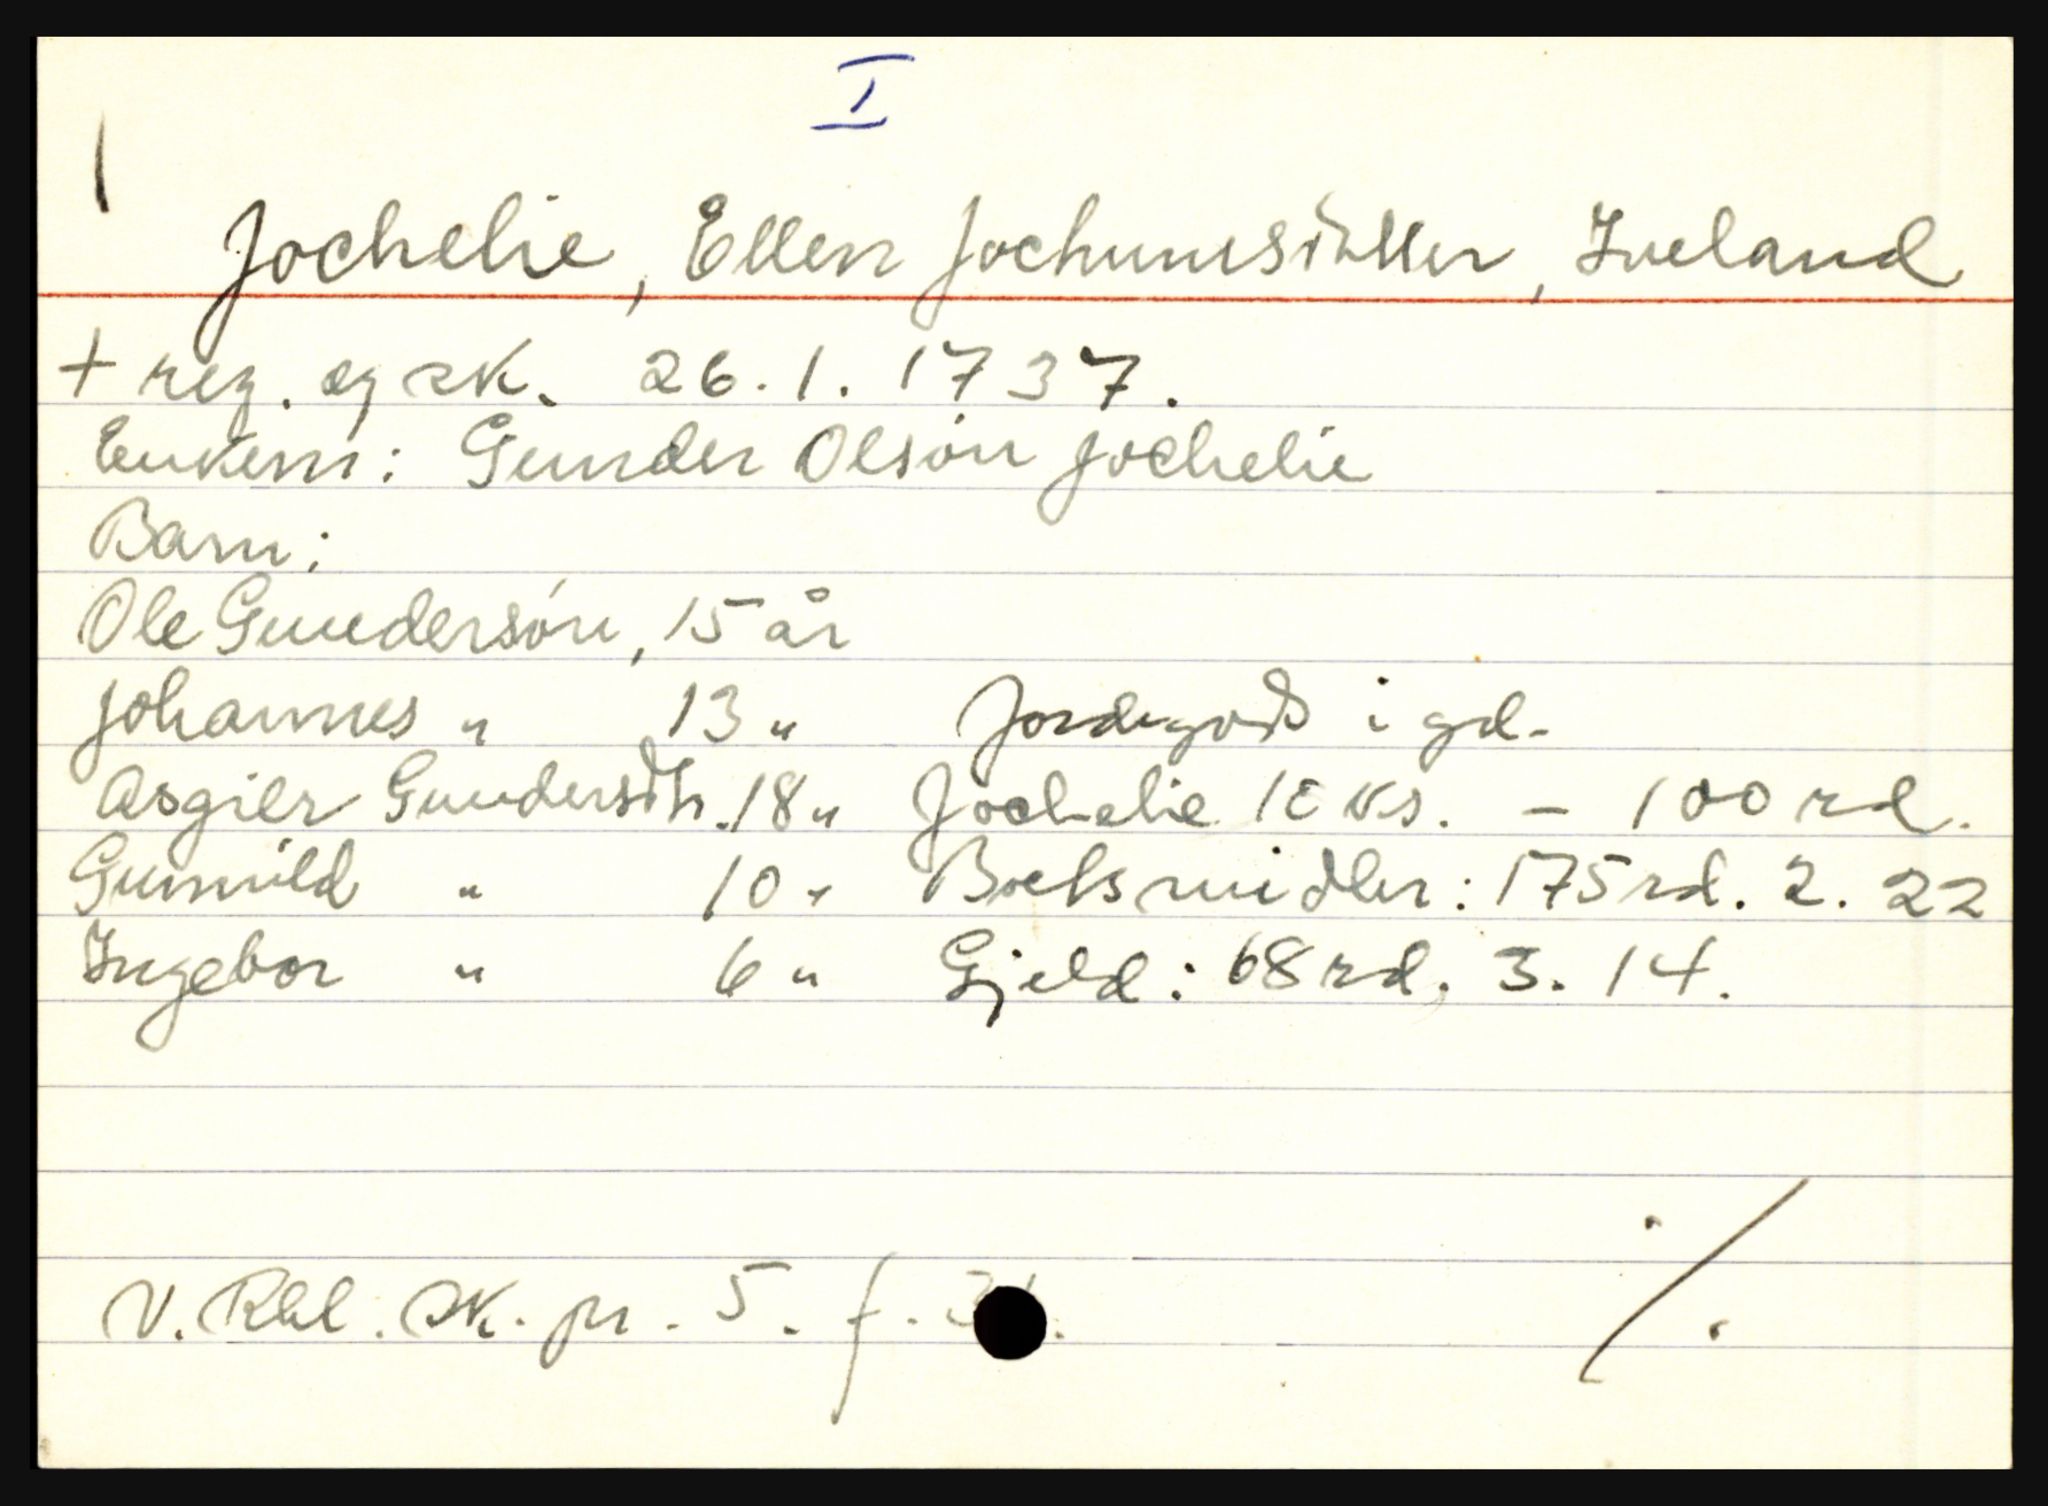 I
Jochelie, Ellen Jochumsdatter, Iveland
+ reg. og sk. 26.1.1737.
Enkem: Gunder Olsön Jochelie
Barn:
Ole Gundersön, 15 år
Johannes " 13 " Jordegods i gd.
Asgier Gundersdtr. 18 " Jochelie 10 ks. - 100 rd.
Gunnild " 10 " Boets midler: 175 rd. 2. 22
Ingebor " 6 " Gjeld: 68 rd. 3. 14.
V. Rbl. sk. pr. 5. f.
./.